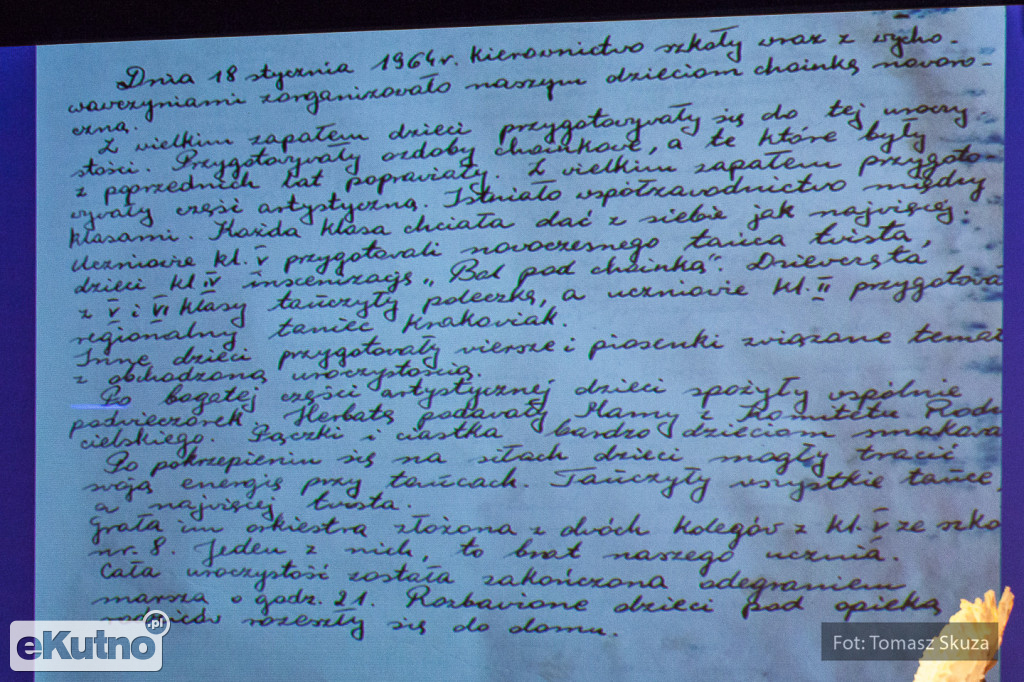 Dnia 18 stycznia 1964r. kierownictwo szkoły wraz z wycho-
wawczyniami zorganizowało naszym dzieciom choinkę noworo-
czną.
Z wielkim zapałem dzieci przygotowywały się do tej uroczy-
stości. Przygotowywały ozdoby choinkowe, a te które były
z poprzednich lat poprawiały. Z wielkim zapałem przygoto-
wywały część artystyczną. Istniało współzawodnictwo między
klasami. Każda klasa chciała dać z siebie jak najwięcej.
Uczniowie kl. V przygotowali nowoczesnego tańca twista,
dzieci kl IV inscenizację „Bal pod choinką". Dziewczęta
z V i VI klasy tańczyły poleczkę, a uczniowie kl. II przygotowa
regionalny taniec Krakowiak.
Inne dzieci przygotowały wiersze i piosenki związane temat
z obchodzoną uroczystością.
Po bogatej części artystycznej dzieci spożyły wspólnie
podwieczorek. Herbatę podawały Mamy z Komitetu Rodzi
cielskiego. Pączki i ciastka bardzo dzieciom smakowa
Po pokrzepieniu się na siłach dzieci mogły tracić
swoją energię przy tańcach. Tańczyły wszystkie tańce,
a najwięcej twista.
Grała im orkiestra złożona z dwóch kolegów z kl. V ze szko
nr. 8. Jeden z nich, to brat naszego ucznia.
Cała uroczystość została zakończona odegraniem
marsza o godz. 21. Rozbawione dzieci pod opieką
rodziców rozeszły się do domu.
eKutno.pl
Fot: Tomasz Skuza